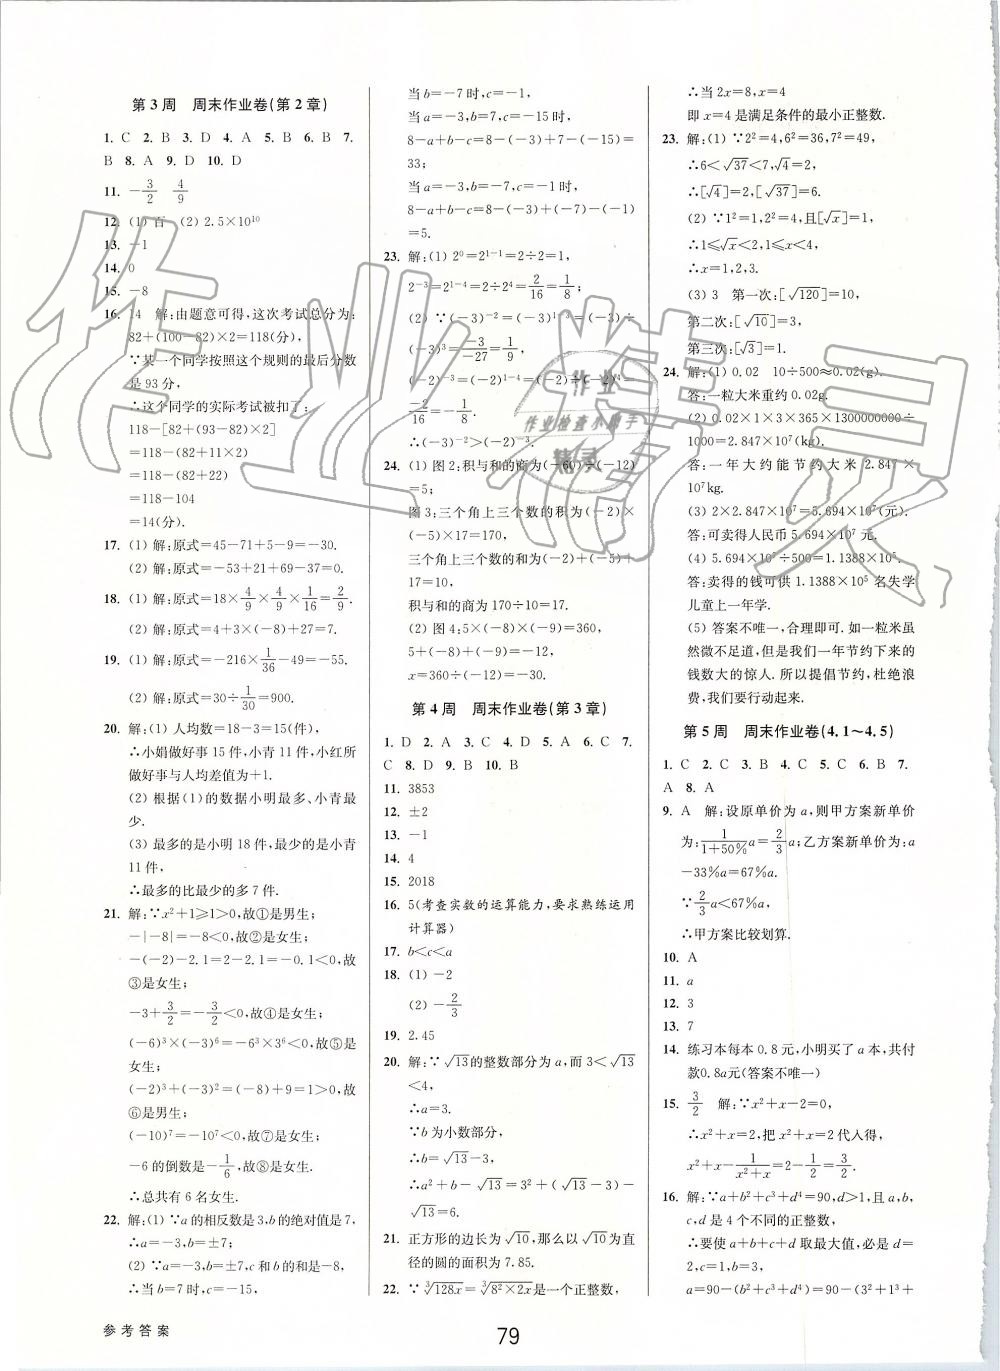 第3周 周末作业卷(第2章)
1. C 2. B 3. D 4. A 5. B 6. B 7.
B 8. A 9. D 10. D
11. －3/2 4/9
12. (1) 百 (2) 2.5×10¹⁰
13. －1
14. 0
15. －8
16. 14 解:由题意可得,这次考试总分为:
82＋(100－82)×2＝118(分)
∵某一个同学按照这个规则的最后分数
是93分,
∴这个同学的实际考试被扣了:
118－[82＋(93－82)×2]
＝118－(82＋11×2)
＝118－(82＋22)
＝118－104
＝14(分).
17. (1) 解:原式＝45－71＋5－9＝－30.
(2) 解:原式＝－53＋21＋69－37＝0.
18. (1) 解:原式＝18×4/9×4/9×1/16＝2/9.
(2) 解:原式＝4＋3×(－8)＋27＝7.
19. (1) 解:原式＝－216×1/36－49＝－55.
(2) 解:原式＝30÷1/30＝900.
20. 解:(1) 人均数＝18－3＝15(件),
∴小娟做好事15件,小青11件,小红所
做好事与人均差值为＋1.
(2) 根据(1)的数据小明最多、小青最
少.
(3) 最多的是小明18件,最少的是小青
11件,
∴最多的比最少的多7件.
21. 解:∵x²＋1≥1＞0,故①是男生;
－|－8|＝－8＜0,故②是女生;
－(－2)－2.1＝2－2.1＝－0.1＜0,故
③是女生;
－3＋3/2＝－3/2＜0,故④是女生;
(－6)³×(－3)⁶＝－6³×3⁶＜0,故⑤是
女生;
(－2)³＋(－3)²＝(－8)＋9＝1＞0,故
⑥是男生;
(－10)⁷＝－10⁷＜0,故⑦是女生;
－6的倒数是－1/6,故⑧是女生.
∴总共有6名女生.
22. 解:(1) ∵a的相反数是3,b的绝对值是7,
∴a＝－3,b＝±7;
(2) ∵a＝－3,b＝±7,c和b的和是－8,
∴当b＝7时,c＝－15,
当b＝－7时,c＝－1,
当a＝－3,b＝7,c＝－15时,
8－a＋b－c＝8－(－3)＋7－(－15)＝
33;
当a＝－3,b＝－7,c＝－1时,
8－a＋b－c＝8－(－3)＋(－7)－(－1)
＝5.
23. 解:(1) 2⁰＝2¹⁻¹＝2÷2＝1,
2⁻³＝2¹⁻⁴＝2÷2⁴＝2/16＝1/8;
(2) ∵(－3)⁻²＝(－3)¹⁻³＝(－3)÷
(－3)³＝－3/－27＝1/9,
(－2)⁻³＝(－2)¹⁻⁴＝(－2)÷(－2)⁴＝
－2/16＝－1/8.
∴(－3)⁻²＞(－2)⁻³.
24. (1) 图2:积与和的商为(－60)÷(－12)
＝5;
图3:三个角上三个数的积为(－2)×
(－5)×17＝170,
三个角上三个数的和为(－2)＋(－5)＋
17＝10,
积与和的商为170÷10＝17.
(2) 图4:5×(－8)×(－9)＝360,
5＋(－8)＋(－9)＝－12,
x＝360÷(－12)＝－30.
第4周 周末作业卷(第3章)
1. D 2. A 3. C 4. D 5. A 6. C 7.
C 8. D 9. B 10. B
11. 3853
12. ±2
13. －1
14. 4
15. 2018
16. 5(考查实数的运算能力,要求熟练运用
计算器)
17. b＜c＜a
18. (1) －2
(2) －2/3
19. 2.45
20. 解:∵√13的整数部分为a,而3＜√13
＜4,
∴a＝3.
∵b为小数部分,
∴b＝√13－3,
∴a²＋b－√13＝3²＋(√13－3)－
√13＝6.
21. 正方形的边长为√10,那么以√10为直
径的圆的面积为7.85.
22. ∵∛128x＝∛8²×2x是一个正整数,
∴当2x＝8,x＝4
即x＝4是满足条件的最小正整数.
23. 解:(1) ∵2²＝4,6²＝36,7²＝49,
∴6＜√37＜7,√4＝2,
∴[√4]＝2,[√37]＝6.
(2) ∵1²＝1,2²＝4,且[√x]＝1,
∴1≤√x＜2,1≤x＜4,
∴x＝1,2,3.
(3) 3 第一次:[√120]＝10,
第二次:[√10]＝3,
第三次:[√3]＝1.
24. 解:(1) 0.02 10÷500≈0.02(g).
答:一粒大米重约0.02g.
(2) 0.02×1×3×365×1300000000÷
1000＝2.847×10⁷(kg).
答:一年大约能节约大米2.847×
10⁷kg.
(3) 2×2.847×10⁷＝5.694×10⁷(元).
答:可卖得人民币5.694×10⁷元.
(4) 5.694×10⁷÷500＝1.1388×10⁵.
答:卖得的钱可供1.1388×10⁵名失学
儿童上一年学.
(5) 答案不唯一,合理即可.如一粒米虽
然微不足道,但是我们一年节约下来的
钱数大的惊人.所以提倡节约,杜绝浪
费,我们要行动起来.
第5周 周末作业卷(4.1～4.5)
1. C 2. C 3. B 4. C 5. C 6. B 7.
A 8. A
9. A 解:设原单价为a,则甲方案新单价
为:1/1＋50%a＝2/3a;乙方案新单价为:a
－33%a＝67%a.
∵2/3a＜67%a,
∴甲方案比较划算.
10. A
11. a
12. 3
13. 7
14. 练习本每本0.8元,小明买了a本,共付
款0.8a元(答案不唯一)
15. 3/2 解:∵x²＋x－2＝0,
∴x²＋x＝2,把x²＋x＝2代入得,
x²＋x－1/x²＋x＝2－1/2＝3/2.
16. 解:∵a＋b²＋c³＋d⁴＝90,d＞1,且a,b,
c,d是4个不同的正整数,
∴要使a＋b＋c＋d取最大值,必是d＝
2,c＝1,b＝3,
a＝90－(b²＋c³＋d⁴)＝90－(3²＋1³＋
参考答案
79
作业精灵
作业
作业检查小帮手
精灵